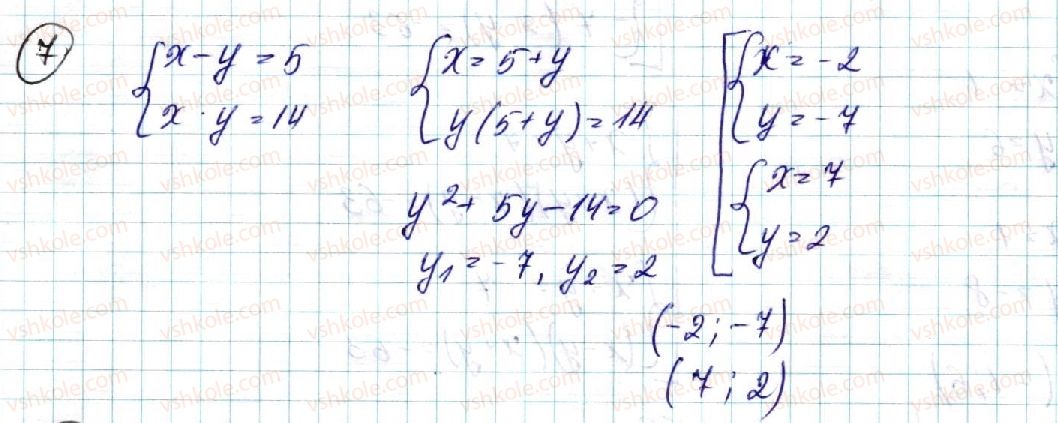 7
x - y = 5
x · y = 14
x = 5 + y
y(5 + y) = 14
y² + 5y - 14 = 0
y₁ = -7, y₂ = 2
x = -2
y = -7
x = 7
y = 2
(-2; -7)
(7; 2)
vshkole.com